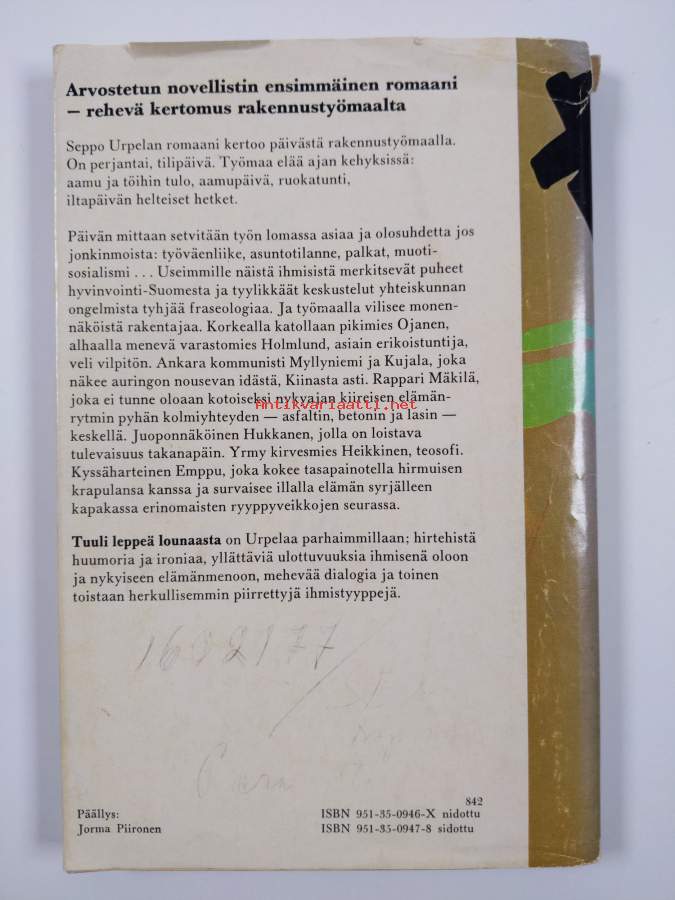 Arvostetun novellistin ensimmäinen romaani
— rehevä kertomus rakennustyömaalta
Seppo Urpelan romaani kertoo päivästä rakennustyömaalla.
On perjantai, tilipäivä. Työmaa elää ajan kehyksissä:
aamu ja töihin tulo, aamupäivä, ruokatunti,
iltapäivän helteiset hetket.
Päivän mittaan setvitään työn lomassa asiaa ja olosuhdetta jos
jonkinmoista: työväenliike, asuntotilanne, palkat, muoti-
sosialismi . . . Useimmille näistä ihmisistä merkitsevät puheet
hyvinvointi-Suomesta ja tyylikkäät keskustelut yhteiskunnan
ongelmista tyhjää fraseologiaa. Ja työmaalla vilisee monen-
näköistä rakentajaa. Korkealla katollaan pikimies Ojanen,
alhaalla menevä varastomies Holmlund, asiain erikoistuntija,
veli vilpitön. Ankara kommunisti Myllyniemi ja Kujala, joka
näkee auringon nousevan idästä, Kiinasta asti. Rappari Mäkilä,
joka ei tunne oloaan kotoiseksi nykyajan kiireisen elämän-
Antikvariaatti.net
rytmin pyhän kolmiyhteyden — asfaltin, betonin ja lasin —
keskellä. Juoponnäköinen Hukkanen, jolla on loistava
tulevaisuus takanapäin. Yrmy kirvesmies Heikkinen, teosofi.
Kyssäharteinen Emppu, joka kokee tasapainotella hirmuisen
krapulansa kanssa ja survaisee illalla elämän syrjälleen
kapakassa erinomaisten ryyppyveikkojen seurassa.
Tuuli leppeä lounaasta on Urpelaa parhaimmillaan; hirtehistä
huumoria ja ironiaa, yllättäviä ulottuvuuksia ihmisenä oloon
ja nykyiseen elämänmenoon, mehevää dialogia ja toinen
toistaan herkullisemmin piirrettyjä ihmistyyppejä.
842
Päällys:
Jorma Piironen
ISBN 951-35-0946-X nidottu
ISBN 951-35-0947-8 sidottu